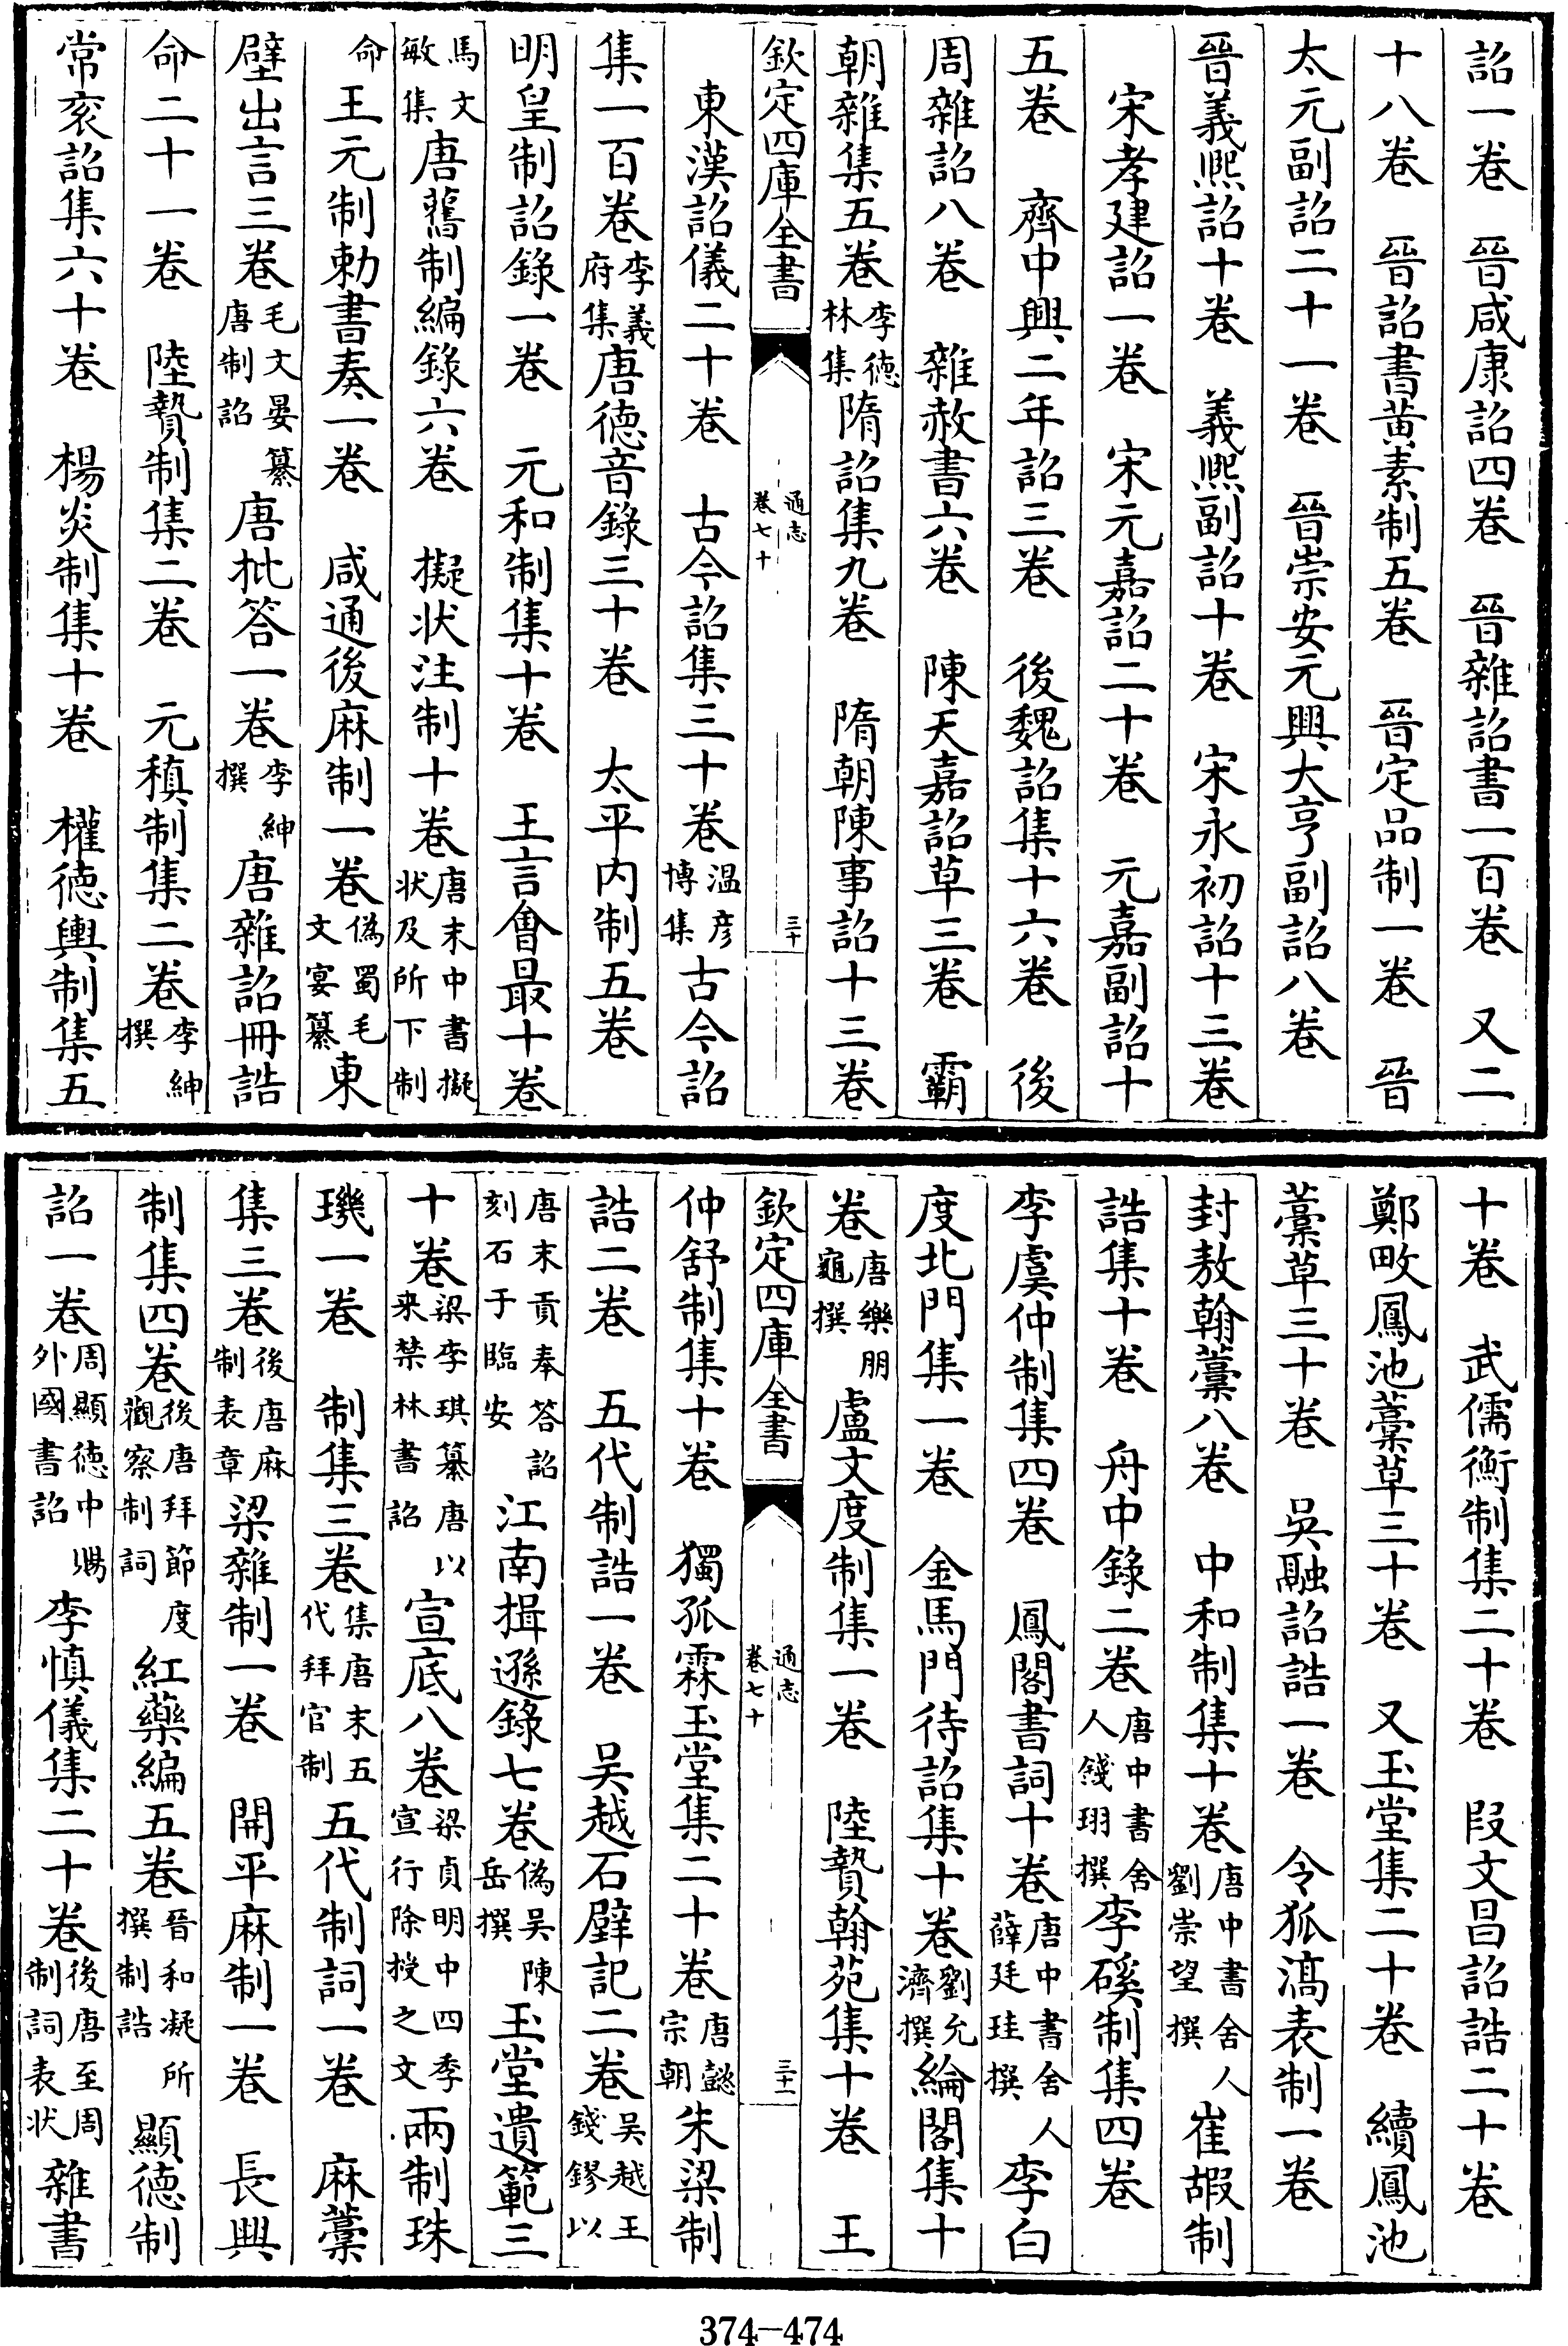 詔一卷　晉咸康詔四卷　晉雜詔書一百卷　又二
十八卷　晉詔書黄素制五卷　晉定品制一卷　晉
太元副詔二十一卷　晉崇安元興大亨副詔八卷
晉義熙詔十卷　義熙副詔十卷　宋永初詔十三卷
宋孝建詔一卷　宋元嘉詔二十卷　元嘉副詔十
五卷　齊中興二年詔三卷　後魏詔集十六卷　後
周雜詔八卷　雜赦書六卷　陳天嘉詔草三卷　霸
朝雜集五卷李德林集隋詔集九卷　隋朝陳事詔十三卷
欽定四庫全書　通志卷七十　三十
東漢詔儀二十卷　古今詔集三十卷温彦博集古今詔
集一百卷李義府集唐德音錄三十卷　太平内制五卷
明皇制詔錄一卷　元和制集十卷　王言會最十卷
馬文敏集唐舊制編錄六卷　擬状注制十卷唐末中書擬状及所下制
命王元制勅書奏一卷　咸通後麻制一卷偽蜀毛文宴纂東
壁出言三卷毛文晏纂唐制詔唐批答一卷李紳撰唐雜詔冊誥
命二十一卷　陸贄制集二卷　元稹制集二卷李紳撰
常衮詔集六十卷　楊炎制集十卷　權德輿制集五
十卷　武儒衡制集二十卷　段文昌詔誥二十卷
鄭畋鳳池藁草三十卷　又玉堂集二十卷　續鳳池
藁草三十卷　吳融詔誥一卷　令狐滈表制一卷
封敖翰藁八卷　中和制集十卷唐中書舍人劉崇望撰崔嘏制
誥集十卷　舟中錄二卷唐中書舍人錢珝撰李磎制集四卷
李虞仲制集四卷　鳳閣書詞十卷唐中書舍人薛廷珪撰李白
度北門集一卷　金馬門待詔集十卷劉允濟撰綸閣集十
卷唐樂朋龜撰盧文度制集一卷　陸贄翰苑集十卷　王
欽定四庫全書　通志卷七十　三十一
仲舒制集十卷　獨孤霖玉堂集二十卷唐懿宗朝朱梁制
誥二卷　五代制誥一卷　吴越石壁記二卷吴越王錢鏐以
唐末貢奉答詔刻石于臨安江南揖遜錄七卷偽吴陳岳撰玉堂遺範三
十卷梁李琪纂唐以来禁林書詔宣底八卷梁貞明中四季宣行除授之文兩制珠
璣一卷　制集三卷集唐末五代拜官制五代制詞一卷　麻藁
集三卷後唐麻制表章梁雜制一卷　開平麻制一卷　長興
制集四卷後唐拜節度觀察制詞紅藥編五卷晉和凝所撰制誥顯德制
詔一卷周顯德中賜外國書詔李慎儀集二十卷後唐至周制詞表状雜書
374—474